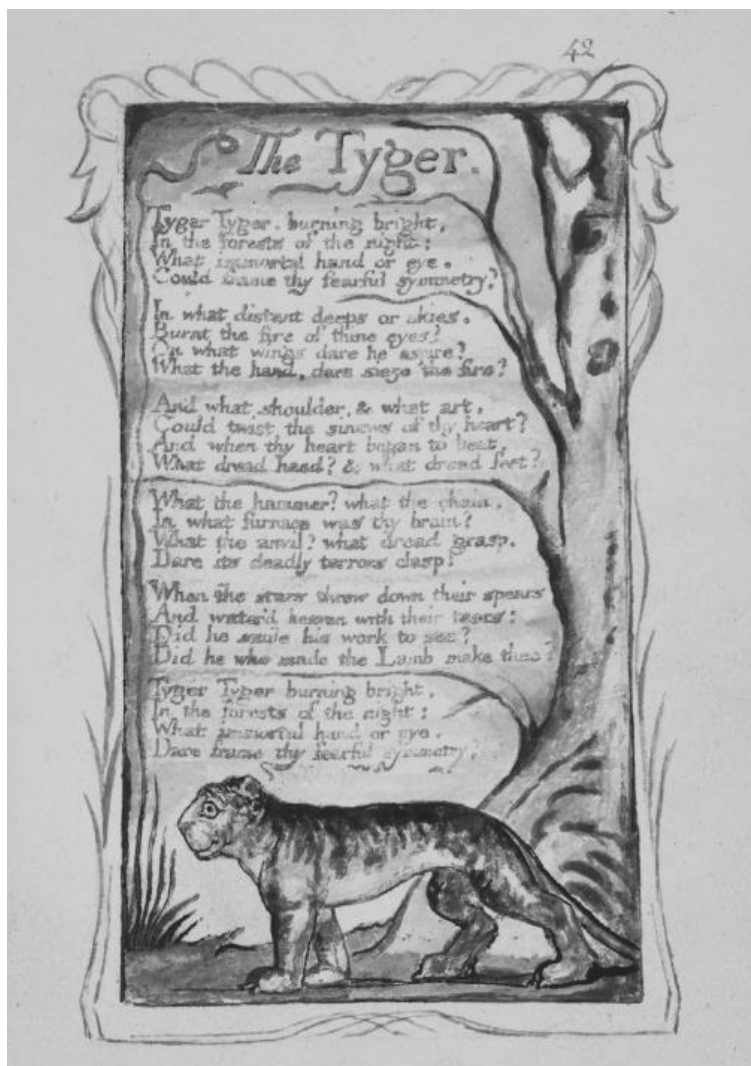 42
The Tyger.
Tyger Tyger. burning bright,
In the forests of the night:
What immortal hand or eye.
Could frame thy fearful symmetry?
In what distant deeps or skies.
Burnt the fire of thine eyes?
On what wings dare he aspire?
What the hand, dare sieze the fire?
And what shoulder, & what art,
Could twist the sinews of thy heart?
And when thy heart began to beat,
What dread hand? & what dread feet?
What the hammer? what the chain,
In what furnace was thy brain?
What the anvil? what dread grasp,
Dare its deadly terrors clasp!
When the stars threw down their spears
And water'd heaven with their tears:
Did he smile his work to see?
Did he who made the Lamb make thee?
Tyger Tyger burning bright,
In the forests of the night:
What immortal hand or eye,
Dare frame thy fearful symmetry?